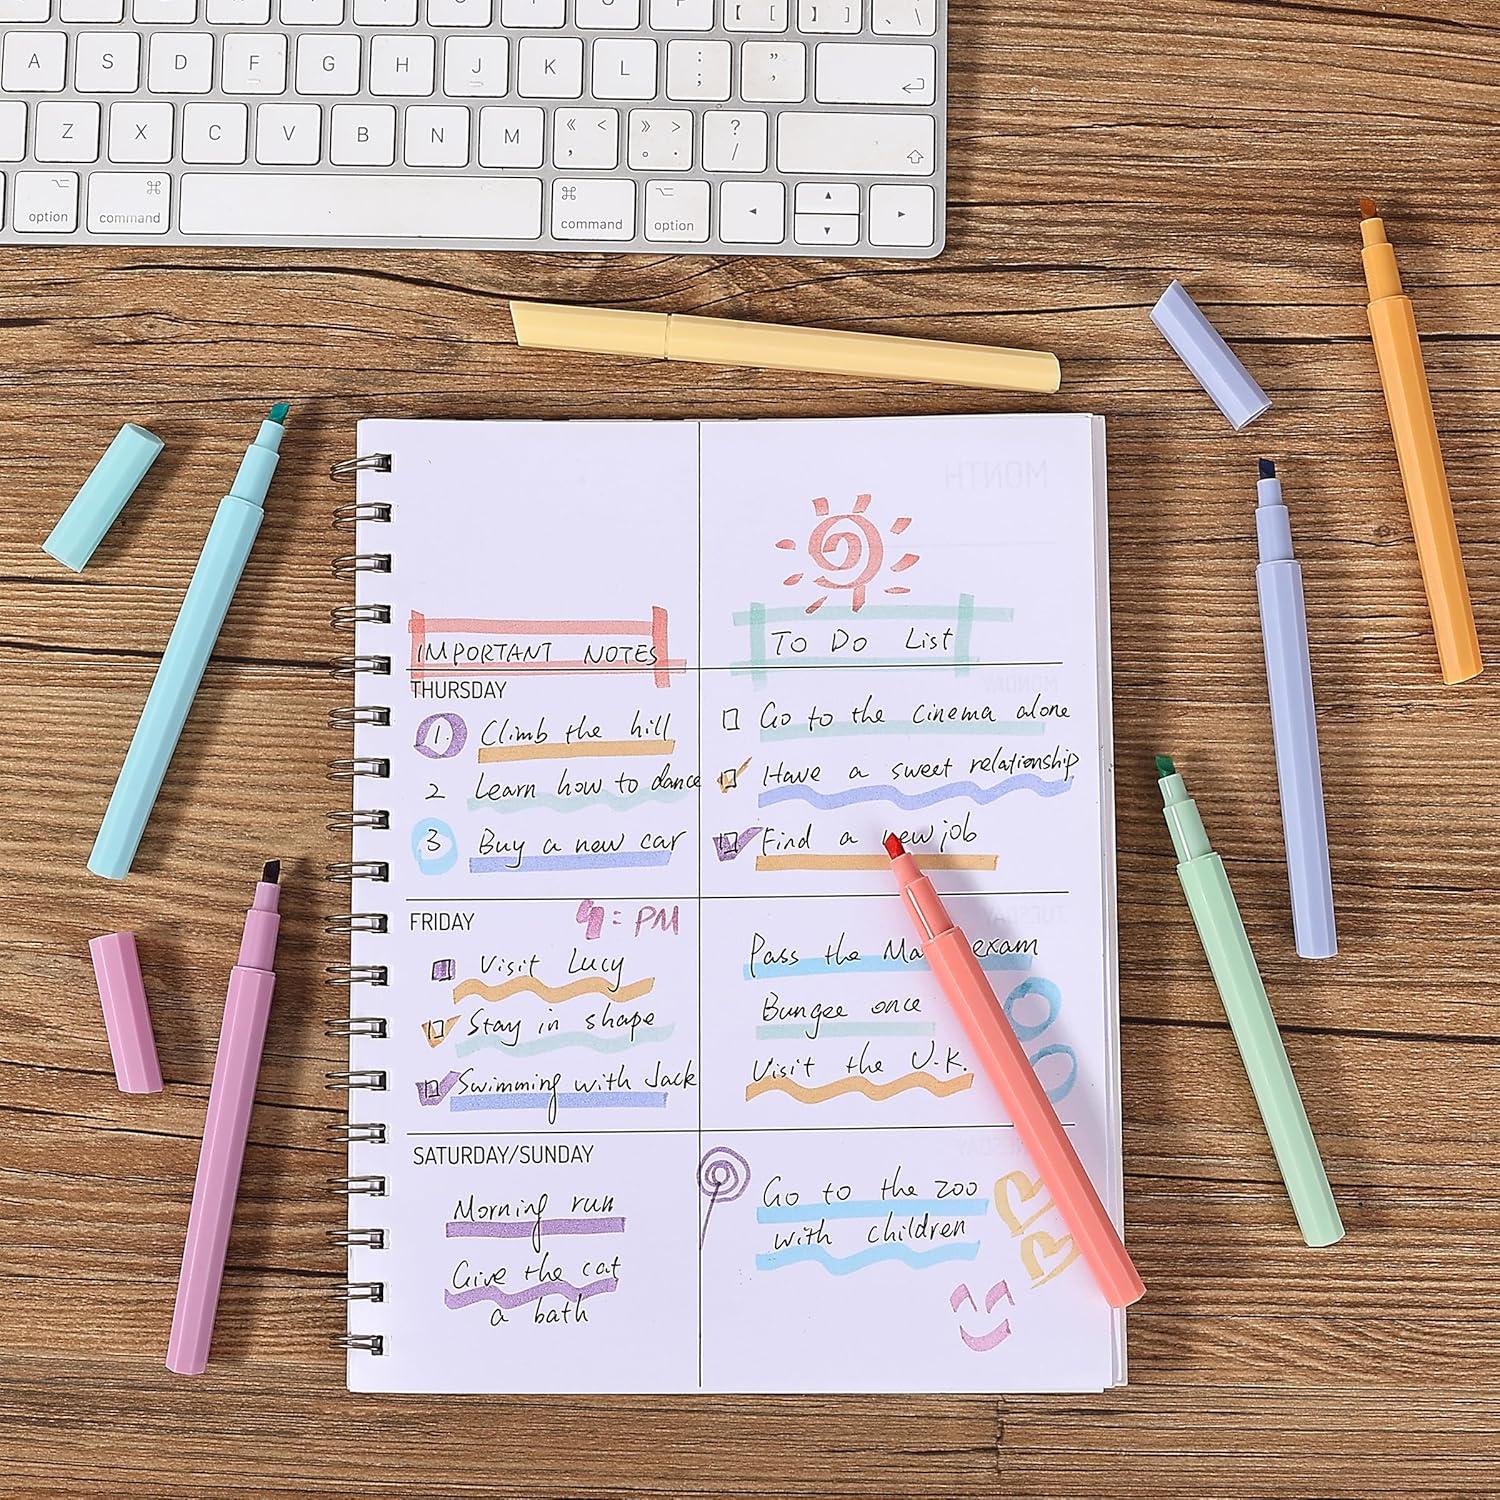 P
【 [
】 ]
、 \
A S D F G H J K L : ; " '
Z X C V B N M 《 < , 》 > 。 . ? /
option command command option
MONTH
IMPORTANT NOTES
To Do List
THURSDAY
1. Climb the hill
2 Learn how to dance
3 Buy a new car
Go to the cinema alone
Have a sweet relationship
Find a new job
FRIDAY
= PM
Visit Lucy
Stay in shape
Swimming with Jack
Pass the Ma exam
Bungee once
Visit the U.K.
SATURDAY/SUNDAY
Morning run
Give the cat
a bath
Go to the zoo
with children